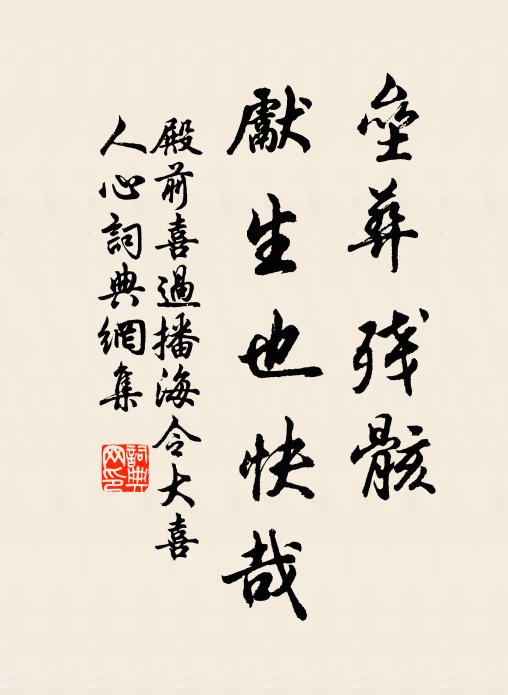 垒葬残骸
献生也快哉
殿前喜過播海令大喜
人心詞典網集
詞典网印